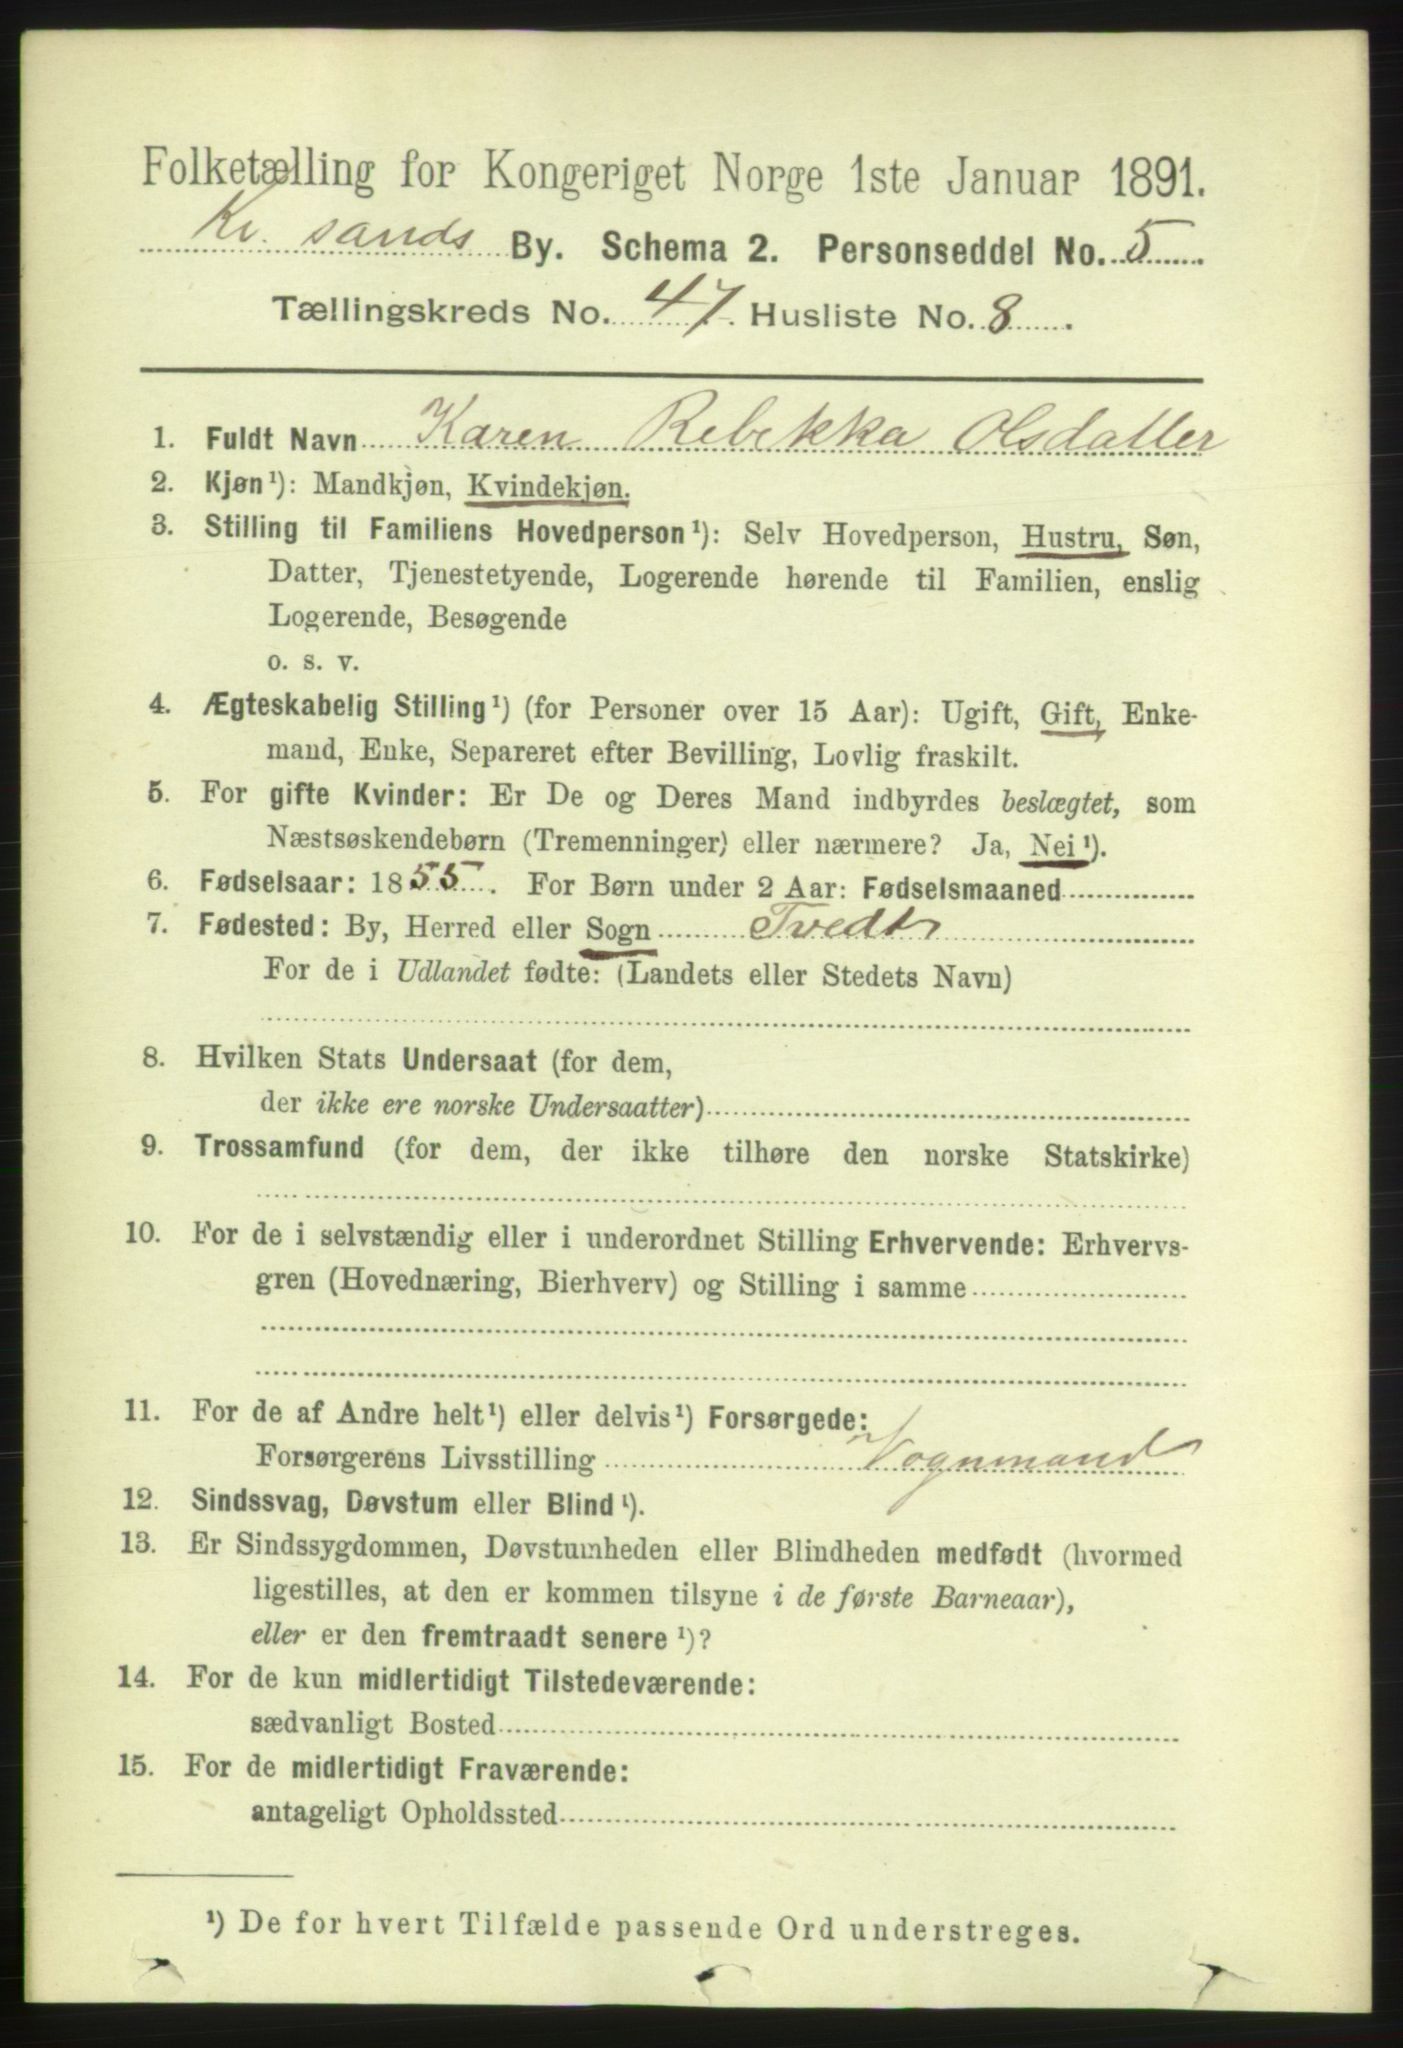 Folketælling for Kongeriget Norge 1ste Januar 1891.
Kr. sands By. Schema 2. Personseddel No. 5
Tællingskreds No. 47. Husliste No. 8.
1. Fuldt Navn Karen Rebekka Olsdatter
2. Kjøn¹): Mandkjøn, Kvindekjøn.
3. Stilling til Familiens Hovedperson¹): Selv Hovedperson, Hustru, Søn,
Datter, Tjenestetyende, Logerende hørende til Familien, enslig
Logerende, Besøgende
o. s. v.
4. Ægteskabelig Stilling¹) (for Personer over 15 Aar): Ugift, Gift, Enke-
mand, Enke, Separeret efter Bevilling, Lovlig fraskilt.
5. For gifte Kvinder: Er De og Deres Mand indbyrdes beslægtet, som
Næstsøskendebørn (Tremenninger) eller nærmere? Ja, Nei¹).
6. Fødselsaar: 1855. For Børn under 2 Aar: Fødselsmaaned
7. Fødested: By, Herred eller Sogn Tvedt
For de i Udlandet fødte: (Landets eller Stedets Navn)
8. Hvilken Stats Undersaat (for dem,
der ikke ere norske Undersaatter)
9. Trossamfund (for dem, der ikke tilhøre den norske Statskirke)
10. For de i selvstændig eller i underordnet Stilling Erhvervende: Erhvervs-
gren (Hovednæring, Bierhverv) og Stilling i samme
11. For de af Andre helt¹) eller delvis¹) Forsørgede:
Forsørgerens Livsstilling Vognmand
12. Sindssvag, Døvstum eller Blind¹).
13. Er Sindssygdommen, Døvstumheden eller Blindheden medfødt (hvormed
ligestilles, at den er kommen tilsyne i de første Barneaar),
eller er den fremtraadt senere¹)?
14. For de kun midlertidigt Tilstedeværende:
sædvanligt Bosted
15. For de midlertidigt Fraværende:
antageligt Opholdssted
¹) De for hvert Tilfælde passende Ord understreges.